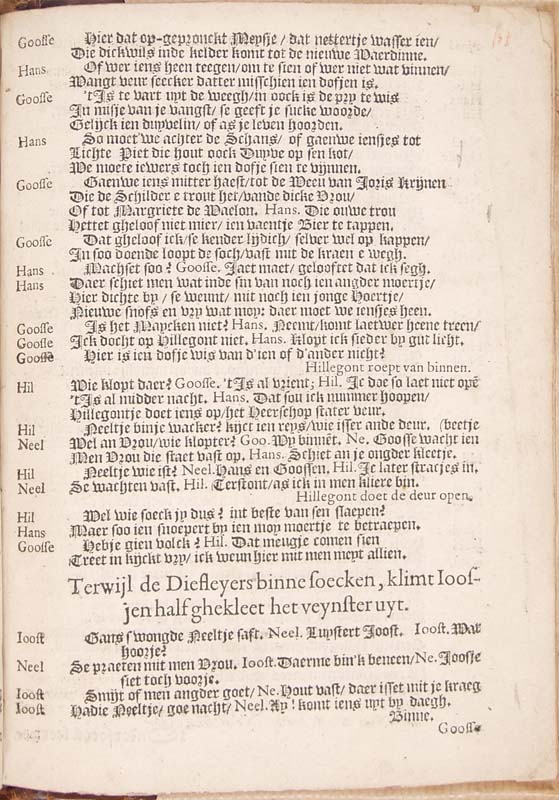 Goosse Hier dat op-gepronckt Meysje / dat nettertje wasser ien/
Die dickwils inde kelder komt tot de nieuwe Waerdinne.
Hans Of wer iens heen teegen/ om te sien of wer niet wat vinnen/
Wangt veur seecker datter misschien ien dofjen is.
Goosse 'tIs te vart uyt de weegh/ in oock is de pry te wis
In misje van je vangst/ se geeft je sucke woorde/
Gelijck ien duyvelin/ of as je leven hoorden.
Hans So moet we achter de Schans/ of gaenwe iensjes tot
Lichte Piet die hout oock Duyve op sen kot/
We moete iewers toch ien dofje sien te vynnen.
Goosse Gaenwe iens mitter haest/ tot de Weeu van Joris Krynen
Die de Schilder e trout het/ vande dicke Vrou/
Of tot Margriete de Waelon. Hans. Die ouwe trou
Hettet gheloof niet mier/ ien vaentje Bier te tappen.
Goosse Dat gheloof ick/ se kender lijdich/ selver wel op kappen/
In soo doende loopt de soch/ vast mit de kraen e wegh.
Hans Machset soo? Goosse. Jaet maet/ gelooftet dat ick segh.
Hans Daer schiet men wat inde sin van noch ien angder moertje/
Hier dichte by / se weunt/ mit noch ien jonge Hoertje/
Nieuwe snofs en vry wat moy: daer moet we iensjes heen.
Goosse Is het Maycken niet? Hans. Neemt/ komt laetwer heene treen/
Goosse Ick docht op Hillegont niet. Hans. Klopt ick sieder by gut licht.
Goosse Hier is ien dofje wis van d'ien of d'ander nicht?
Hillegont roept van binnen.
Hil Wie klopt daer? Goosse. 'tIs al vrient; Hil. Je doe so laet niet opē
'tIs al midder nacht. Hans. Dat sou ick nummer hoopen/
Hillegontje doet iens op/ het Heerschop stater veur.
Hil Neeltje binje wacker? kijct ien reys/ wie isser ande deur. (beetje
Neel Wel an Vrou/ wie klopter? Goo. Wy binnēt. Ne. Goosse wacht ien
Men Vrou die staet vast op. Hans. Schiet an je ongder kleetje.
Hil Neeltje wie ist? Neel. Hans en Goossen. Hil. Je later stracjes in.
Neel Se wachten vast. Hil. Terstont/ as ick in men kliere bin.
Hillegont doet de deur open.
Hil Wel wie soeck jy dus? int beste van sen slaepen?
Hans Maer soo ien snoepert by ien moy moertje te betraepen.
Goosse Hebje gien volck? Hil. Dat meugje comen sien
Treet in kijckt vry/ ick weun hier mit men meyt allien.
Terwijl de Diefleyers binne soecken, klimt Ioos-
jen half ghekleet het veynster uyt.
Ioost Gans swongde Neeltje sast. Neel. Luystert Joost. Ioost. Wat
hoorje?
Neel Se praeten mit men Vrou. Ioost. Daerme bin'k beneen/ Ne. Joosje
siet toch voorje.
Ioost Smijt of men angder goet/ Ne. Hout vast/ daer isset mit je kraeg
Ioost Hadie Neeltje/ goe nacht/ Neel. Ay! komt iens uyt by daegh.
Binne.
Goosse